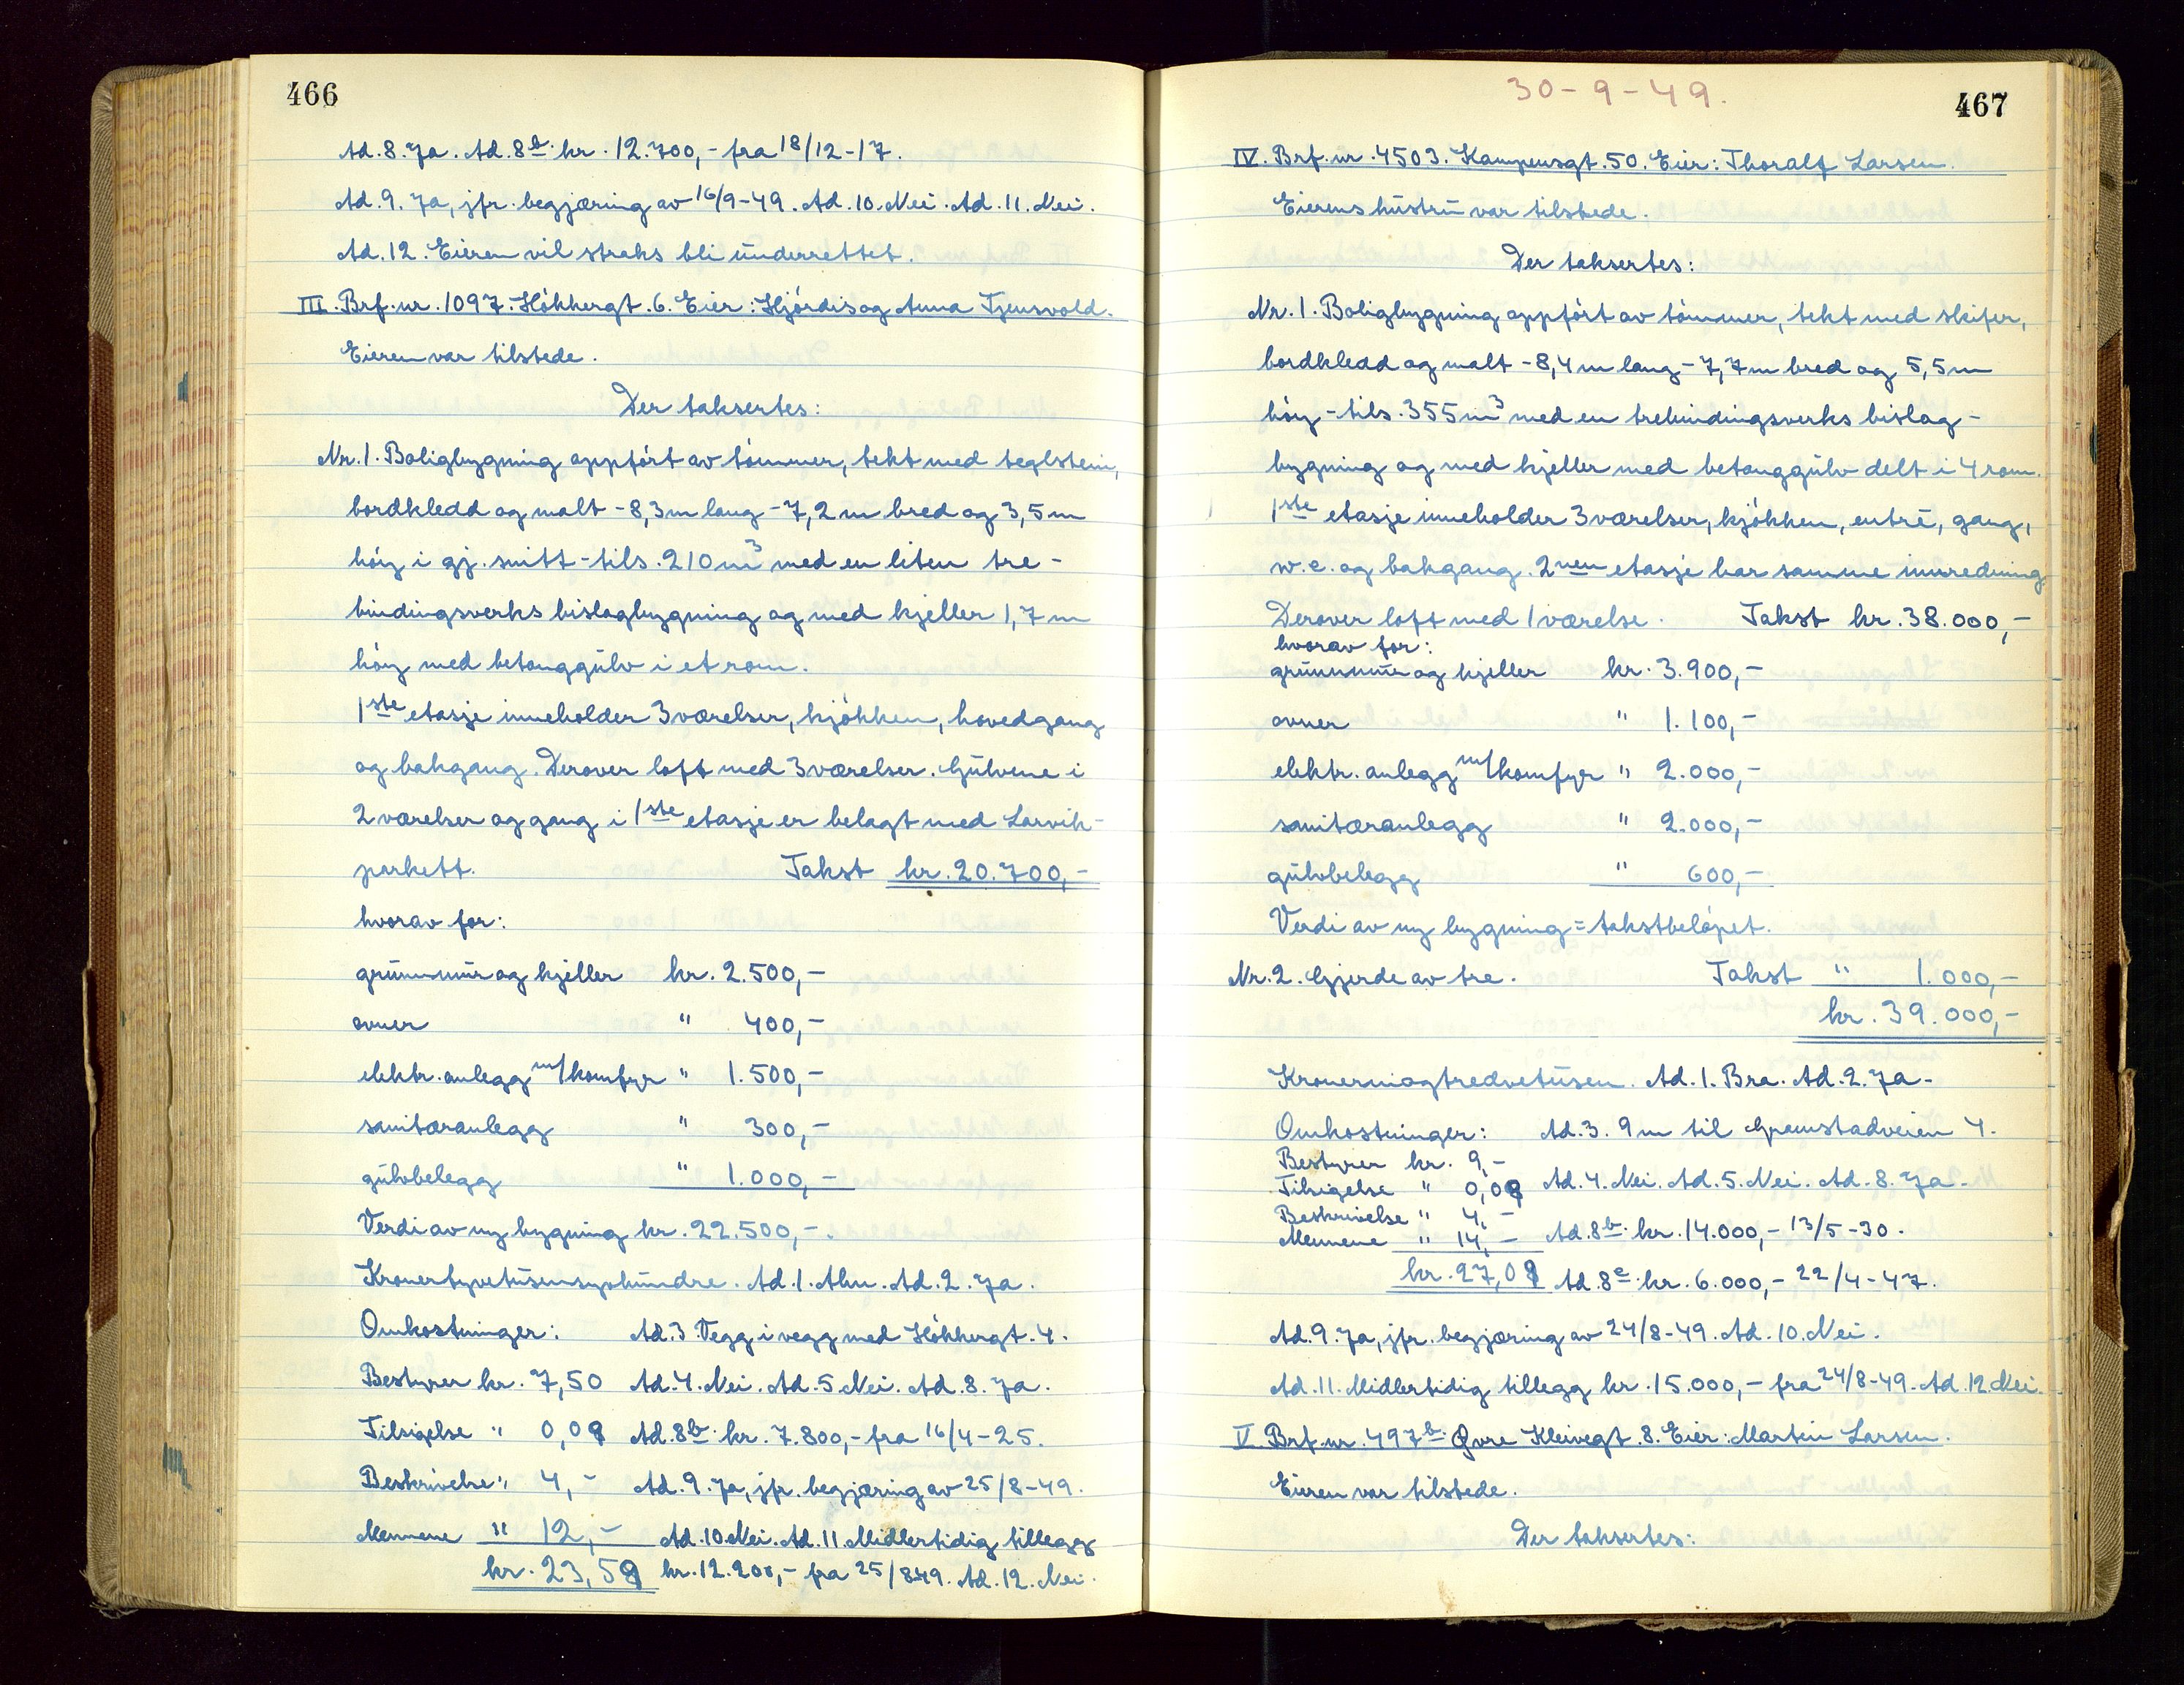 466
Ad. 8. Ja. Ad. 8b. kr. 12.700,- fra 18/12-17.
Ad. 9. Ja, jfr. begjæring av 16/9-49. Ad. 10. Nei. Ad. 11. Nei.
Ad. 12. Eieren vil straks bli underrettet.
III. Brf. nr. 1097. Hökkergt. 6. Eier: Hjördis og Anna Tjensvold.
Eieren var tilstede.
Der taksertes:
Nr. 1. Boligbygning oppfört av tömmer, tekt med teglstein,
bordkledd og malt - 8,3 m lang - 7,2 m bred og 3,5 m
höy i gj. snitt - tils. 210 m3 med en liten tre-
bindingsverks bislagbygning og med kjeller 1,7 m
höy med betonggulv i et rom.
1ste etasje inneholder 3 værelser, kjökken, hovedgang
og bakgang. Derover loft med 3 værelser. Gulvene i
2 værelser og gang i 1ste etasje er belagt med Larvik-
parkett. Takst kr. 20.700,-
hvorav for:
grunnmur og kjeller kr. 2.500,-
ovner " 400,-
elektr. anlegg m/komfyr " 1.500,-
sanitæranlegg " 300,-
gulvbelegg " 1.000,-
Verdi av ny bygning kr. 22.500,-.
Kronertyvetusensyvhundre. Ad. 1. Alm. Ad. 2. Ja.
Omkostninger: Ad. 3. Vegg i vegg med Hökkergt. 4.
Bestyrer kr. 7,50 Ad. 4. Nei. Ad. 5. Nei. Ad. 8. Ja.
Tilsigelse " 0,08 Ad. 8b. kr. 7.800,- fra 16/4-25.
Beskrivelse " 4,- Ad. 9. Ja, jfr. begjæring av 25/8-49.
Mennene " 12,- Ad. 10. Nei. Ad. 11. Midlertidig tillegg
kr. 23,58 kr. 12.200,- fra 25/8-49. Ad. 12. Nei.
30-9-49.
467
IV. Brf. nr. 4503. Kampensgt. 50. Eier: Thoralf Larsen.
Eierens hustru var tilstede.
Der taksertes:
Nr. 1. Boligbygning oppfört av tömmer, tekt med skifer,
bordkledd og malt - 8,4 m lang - 7,7 m bred og 5,5 m
höy - tils. 355 m3 med en trebindingsverks bislag-
bygning og med kjeller med betonggulv delt i 4 rom.
1ste etasje inneholder 3 værelser, kjökken, entré, gang,
w.c. og bakgang. 2nen etasje har samme innredning
Derover loft med 1 værelse. Takst kr. 38.000,-
hvorav for:
grunnmur og kjeller kr. 3.900,-
ovner " 1.100,-
elektr. anlegg m/komfyr " 2.000,-
sanitæranlegg " 2.000,-
gulvbelegg " 600,-
Verdi av ny bygning = takstbelöpet.
Nr. 2. Gjerde av tre. Takst " 1.000,-
kr. 39.000,-
Kronerniogtredvetusen. Ad. 1. Bra. Ad. 2. Ja.
Omkostninger: Ad. 3. 9 m til Gramstadveien 4.
Bestyrer kr. 9,-
Tilsigelse " 0,08 Ad. 4. Nei. Ad. 5. Nei. Ad. 8. Ja.
Beskrivelse " 4,-
Mennene " 14,- Ad. 8b. kr. 14.000,- 13/5-30.
kr. 27,08 Ad. 8c. kr. 6.000,- 22/4-47.
Ad. 9. Ja, jfr. begjæring av 24/8-49. Ad. 10. Nei.
Ad. 11. Midlertidig tillegg kr. 15.000,- fra 24/8-49. Ad. 12. Nei.
V. Brf. nr. 497b. Øvre Kleivegt. 8. Eier: Martin Larsen.
Eieren var tilstede.
Der taksertes: